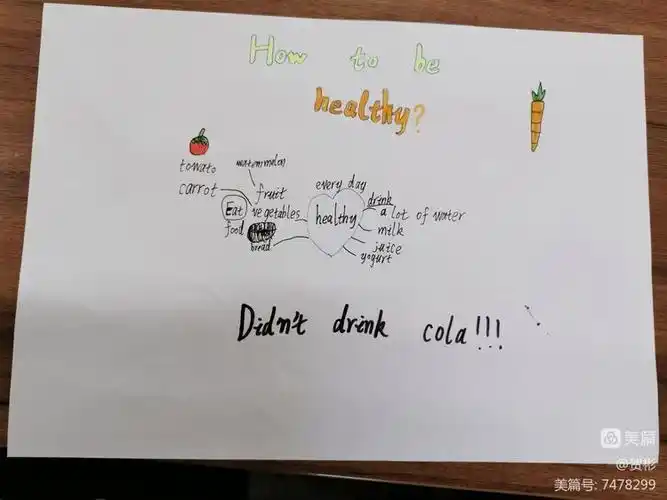 How to be
healthy?
tomato watermelon
carrot fruit every day
Eat vegetables healthy drink
a lot of water
food milk
bread juice
yogurt
Didn't drink cola!!!
美篇
@贺彬
美篇号: 7478299